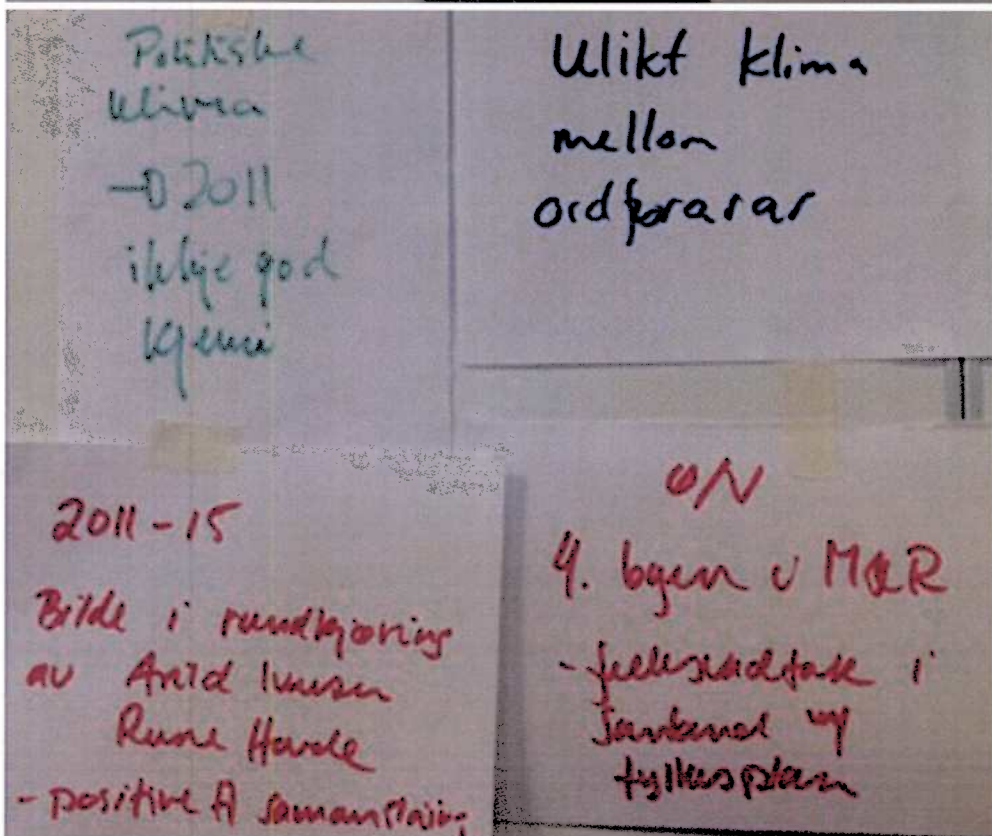 Politiske
klima
→ 2011
ikkje god
kjemi
Ulikt klima
mellom
ordførarar
2011-15
Bilde i rundkjøring
av Arild Iversen
Rune Hovde
- positive til samanslåing
Ø/V
4. byen i M&R
- fellesnedtak i
samband m/
fylkesplan